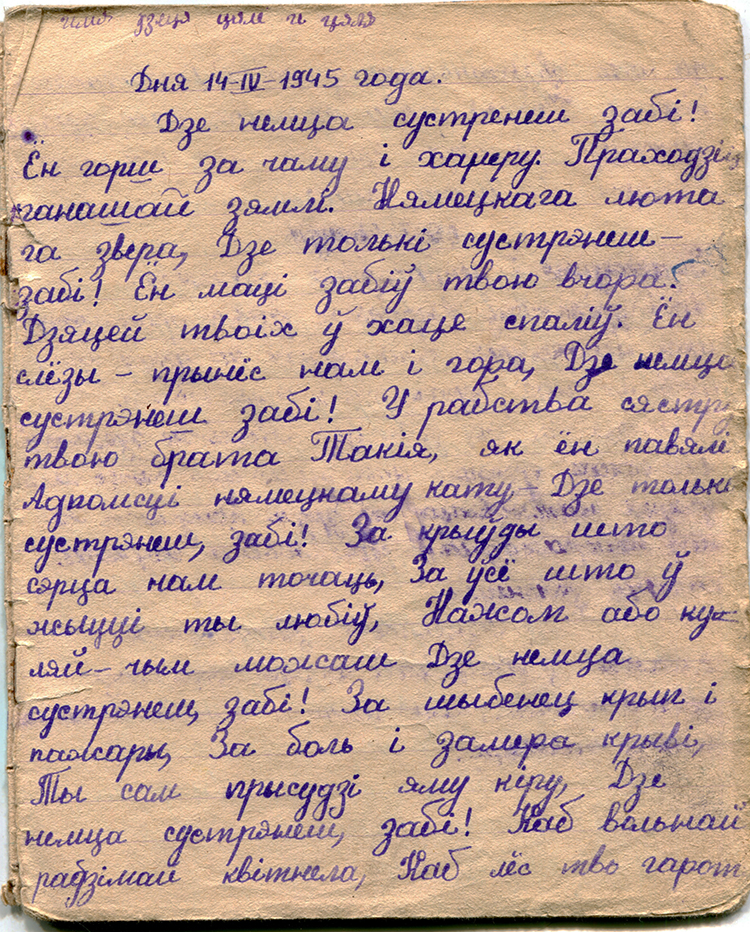 имя дзеця цям и цяля
Дня 14-IV-1945 года.
Дзе немца сустренеш забі!
Ён горш за чаму і хареру. Праходзі
ганашай зямлі. Нямецкага люта
га звера, Дзе толькі сустрэнеш-
забі! Ён маці забіў твою вчора.
Дзяцей твоіх ў хаце спаліў. Ён
слёзы - прынёс нам і гора, Дзе немца
сустрэнеш забі! У рабства сястру
твою брата Такія, як ён павялі
Адпомсці нямецкаму кату - Дзе толькі
сустрэнеш, забі! За крыўды што
сэрца нам точаць, За ўсё што ў
жыцці ты любіў, Нажом або ку-
ляй - чым можаш Дзе немца
сустрэнеш, забі! За шыбенец крып і
пажары, За боль і замера крыві,
Ты сам прысудзі яму кіру, Дзе
немца сустрэнеш, забі! Каб вольнай
радзімай квітнела, Каб лёс тво гарот